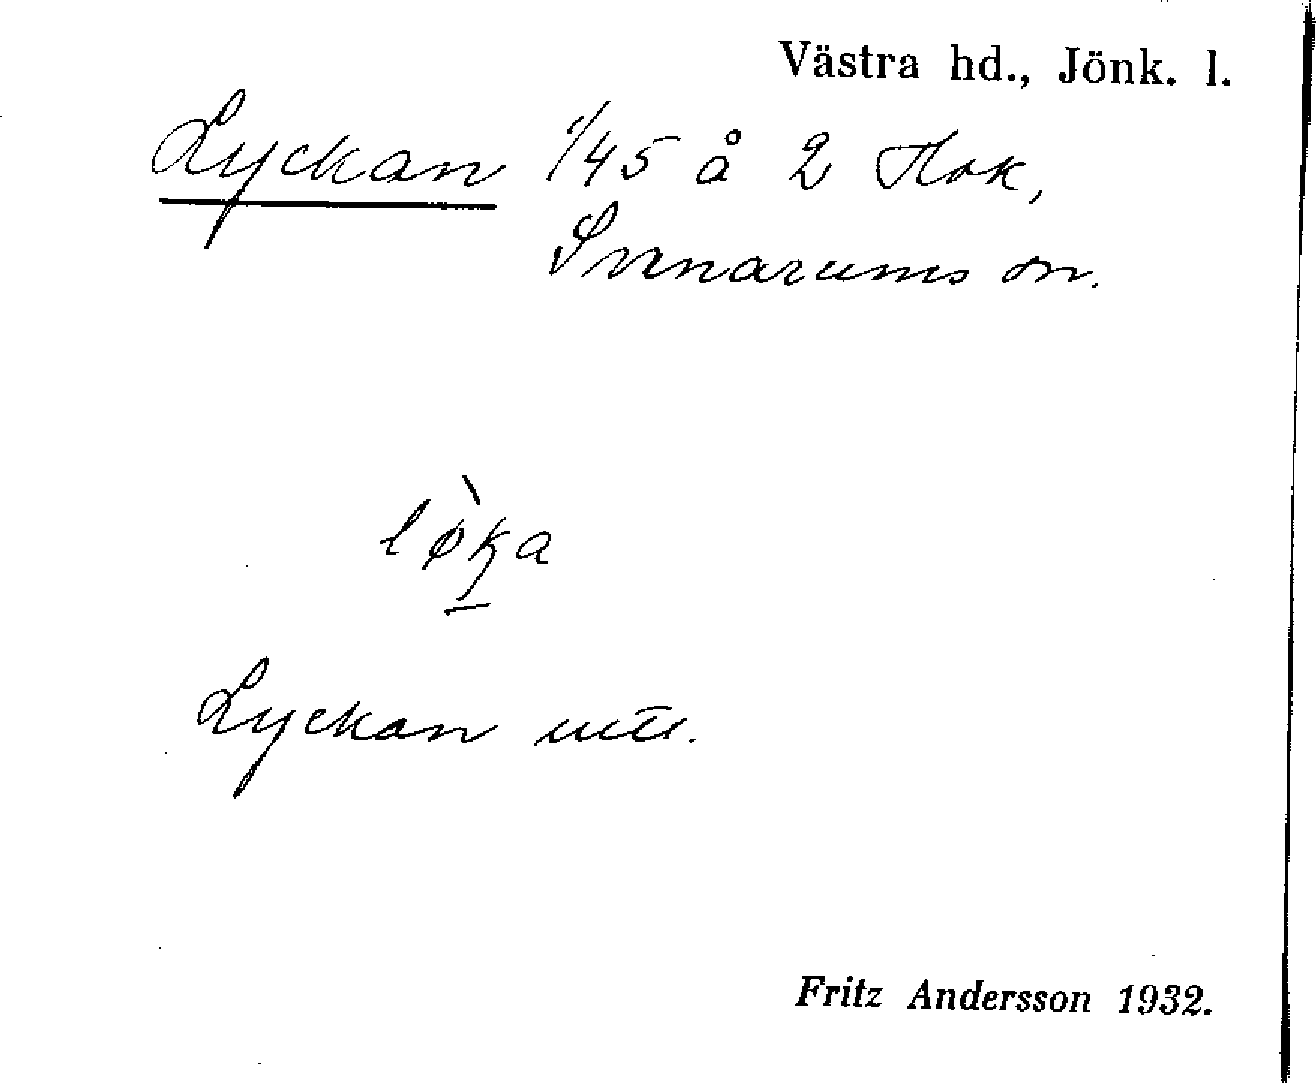 Västra hd., Jönk. l.
Lyckan 1/45 å 2 Hok,
Svenarums sn.
lø̀ka
Lyckan
Fritz Andersson 1932.